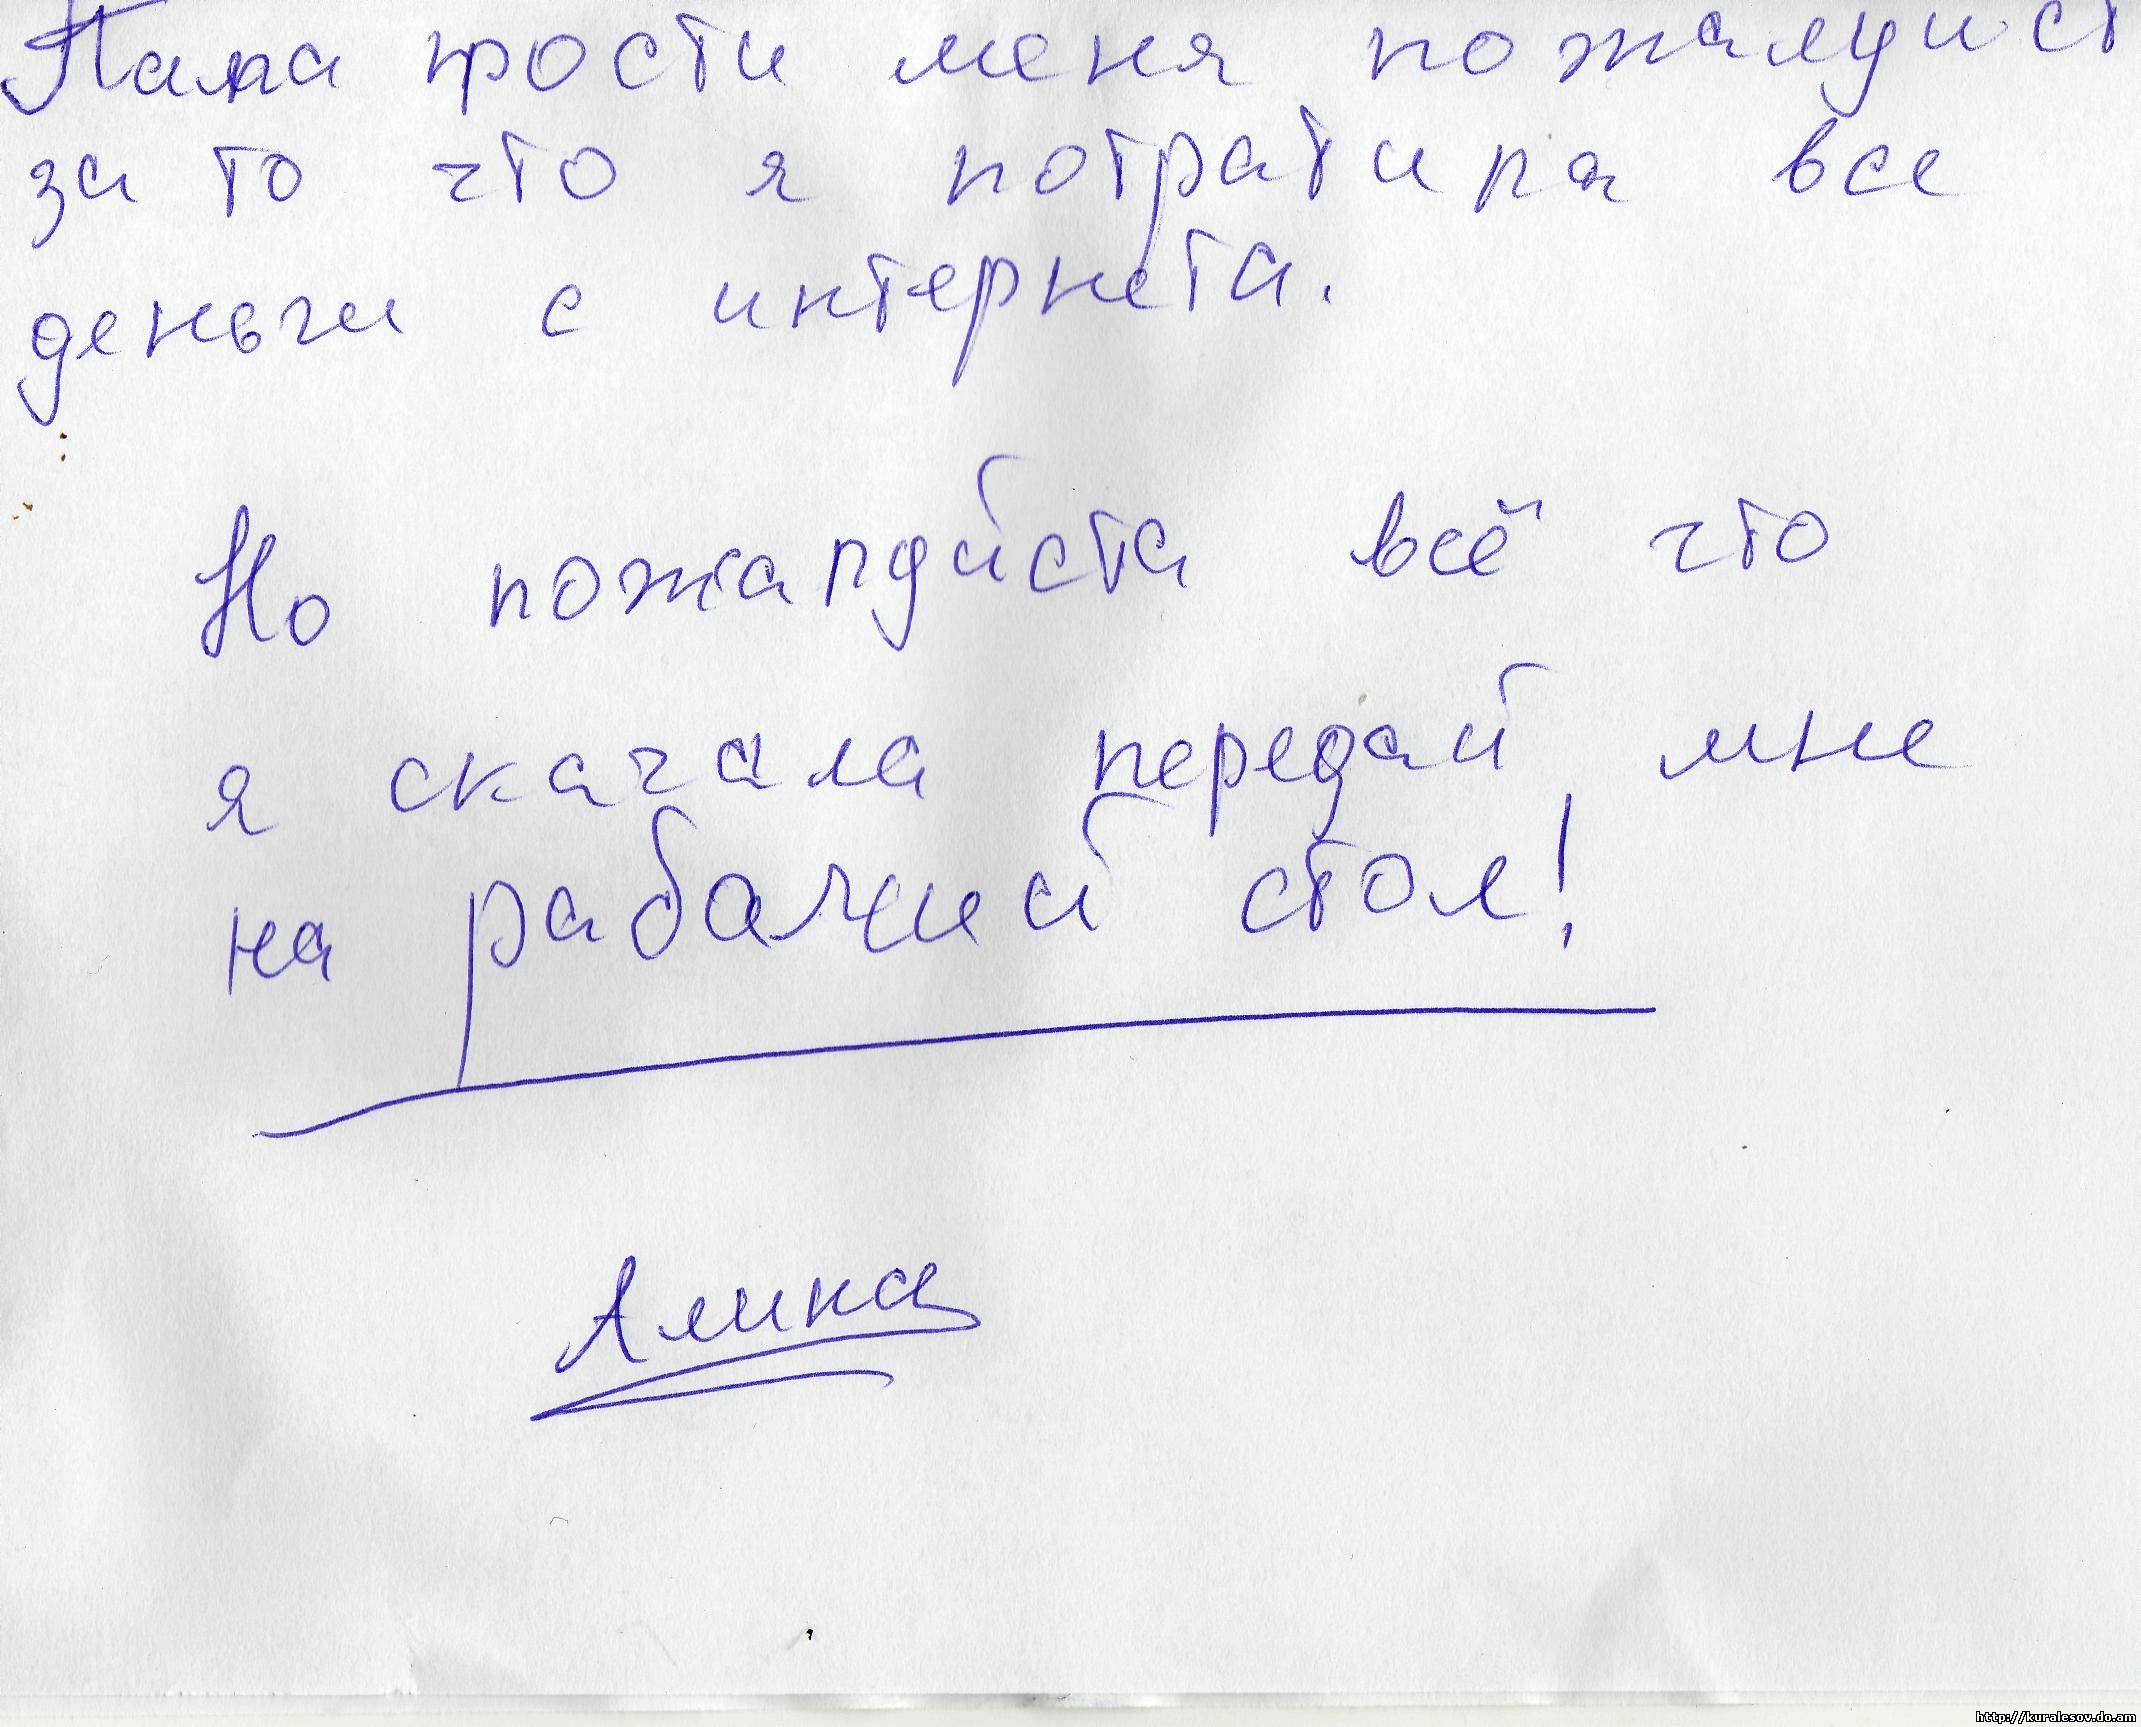 Папа прости меня пожалуист
за то что я потратила все
деньги с интернета.
Но пожалуйста всё что
я скачала передай мне
на рабочий стол!
Алина
http://kuralesov.do.am